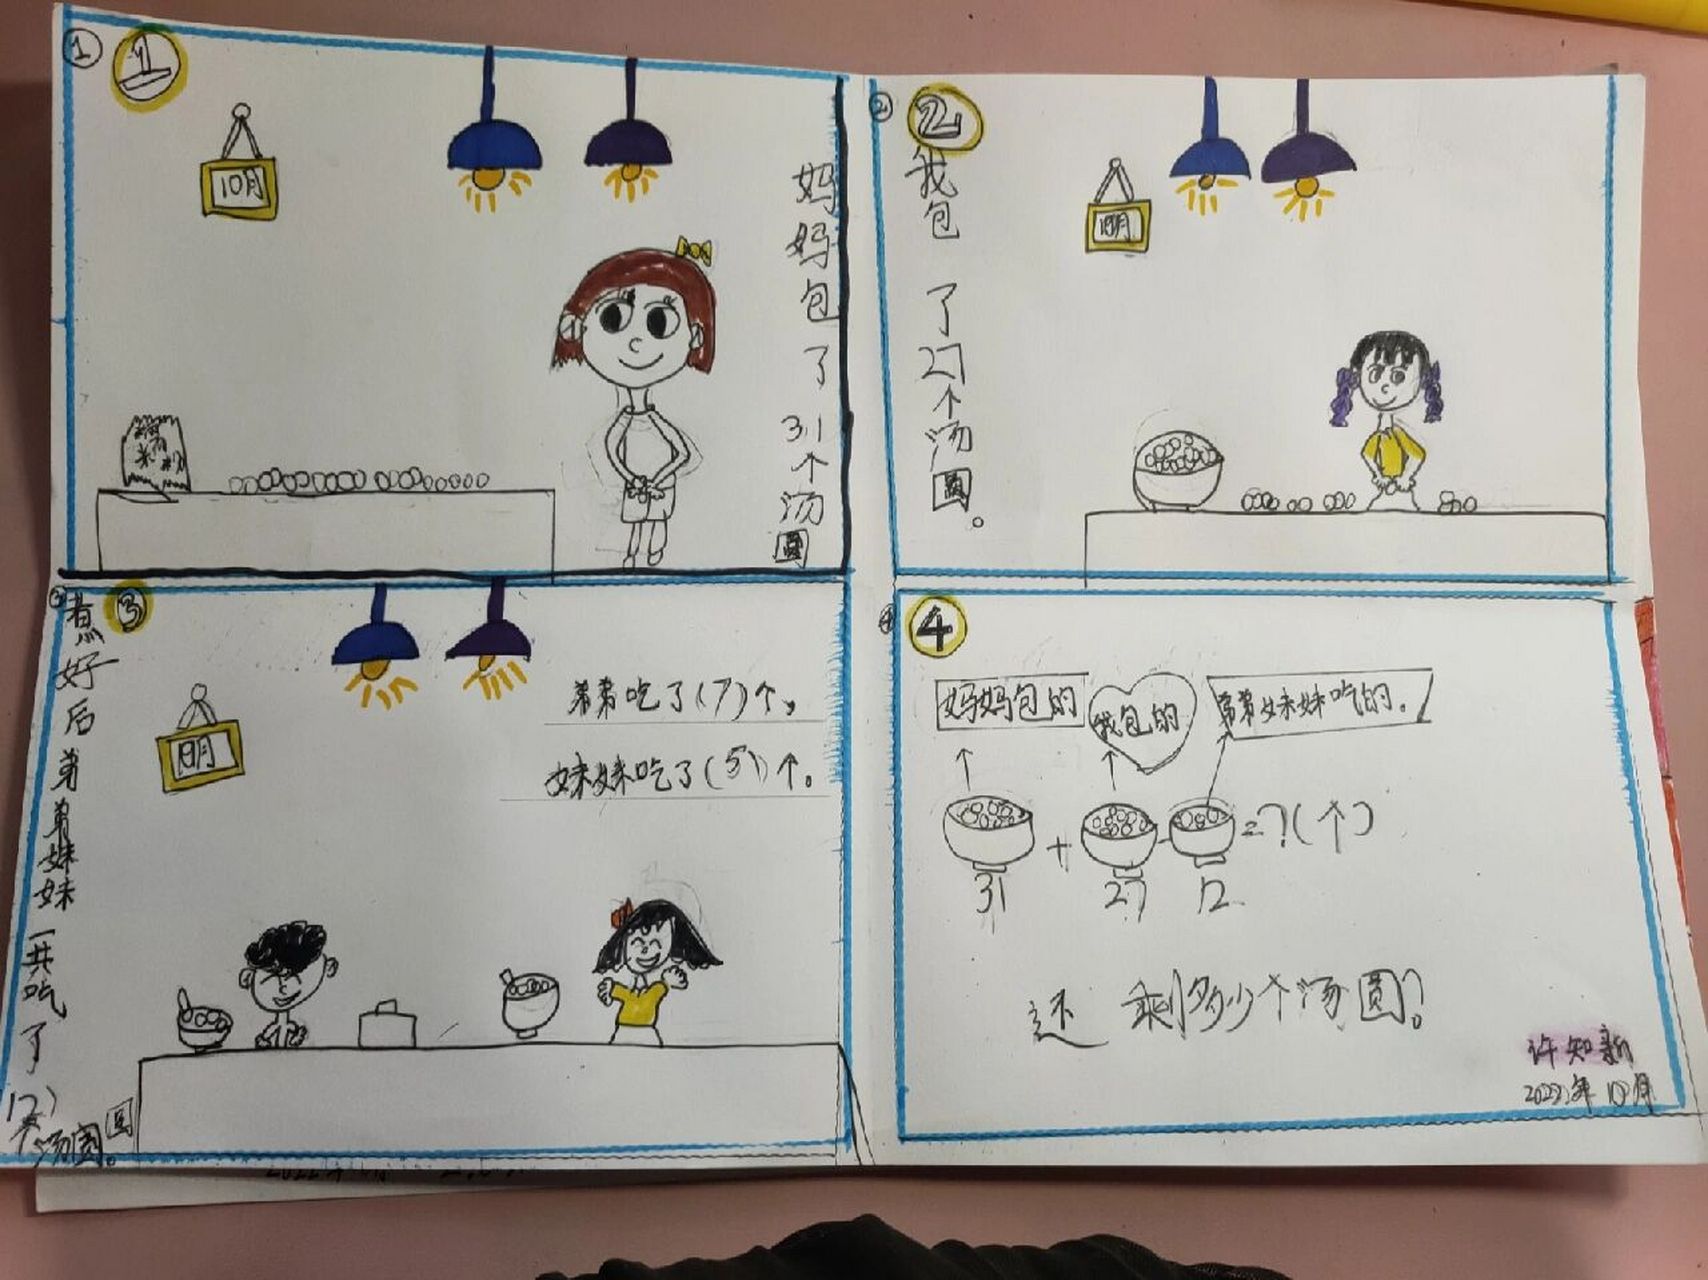 1
1
10月
妈妈包了31个汤圆
糯
米粉
2
2
10月
我包了27个汤圆。
3
3
10月
煮好后弟弟妹妹一共吃了12个汤圆。
弟弟吃了(7)个,
妹妹吃了(5)个。
4
4
妈妈包的
我包的
弟弟妹妹吃的。
31 + 27 - 12 =?(个)
还剩多少个汤圆?
许知新
2022年10月